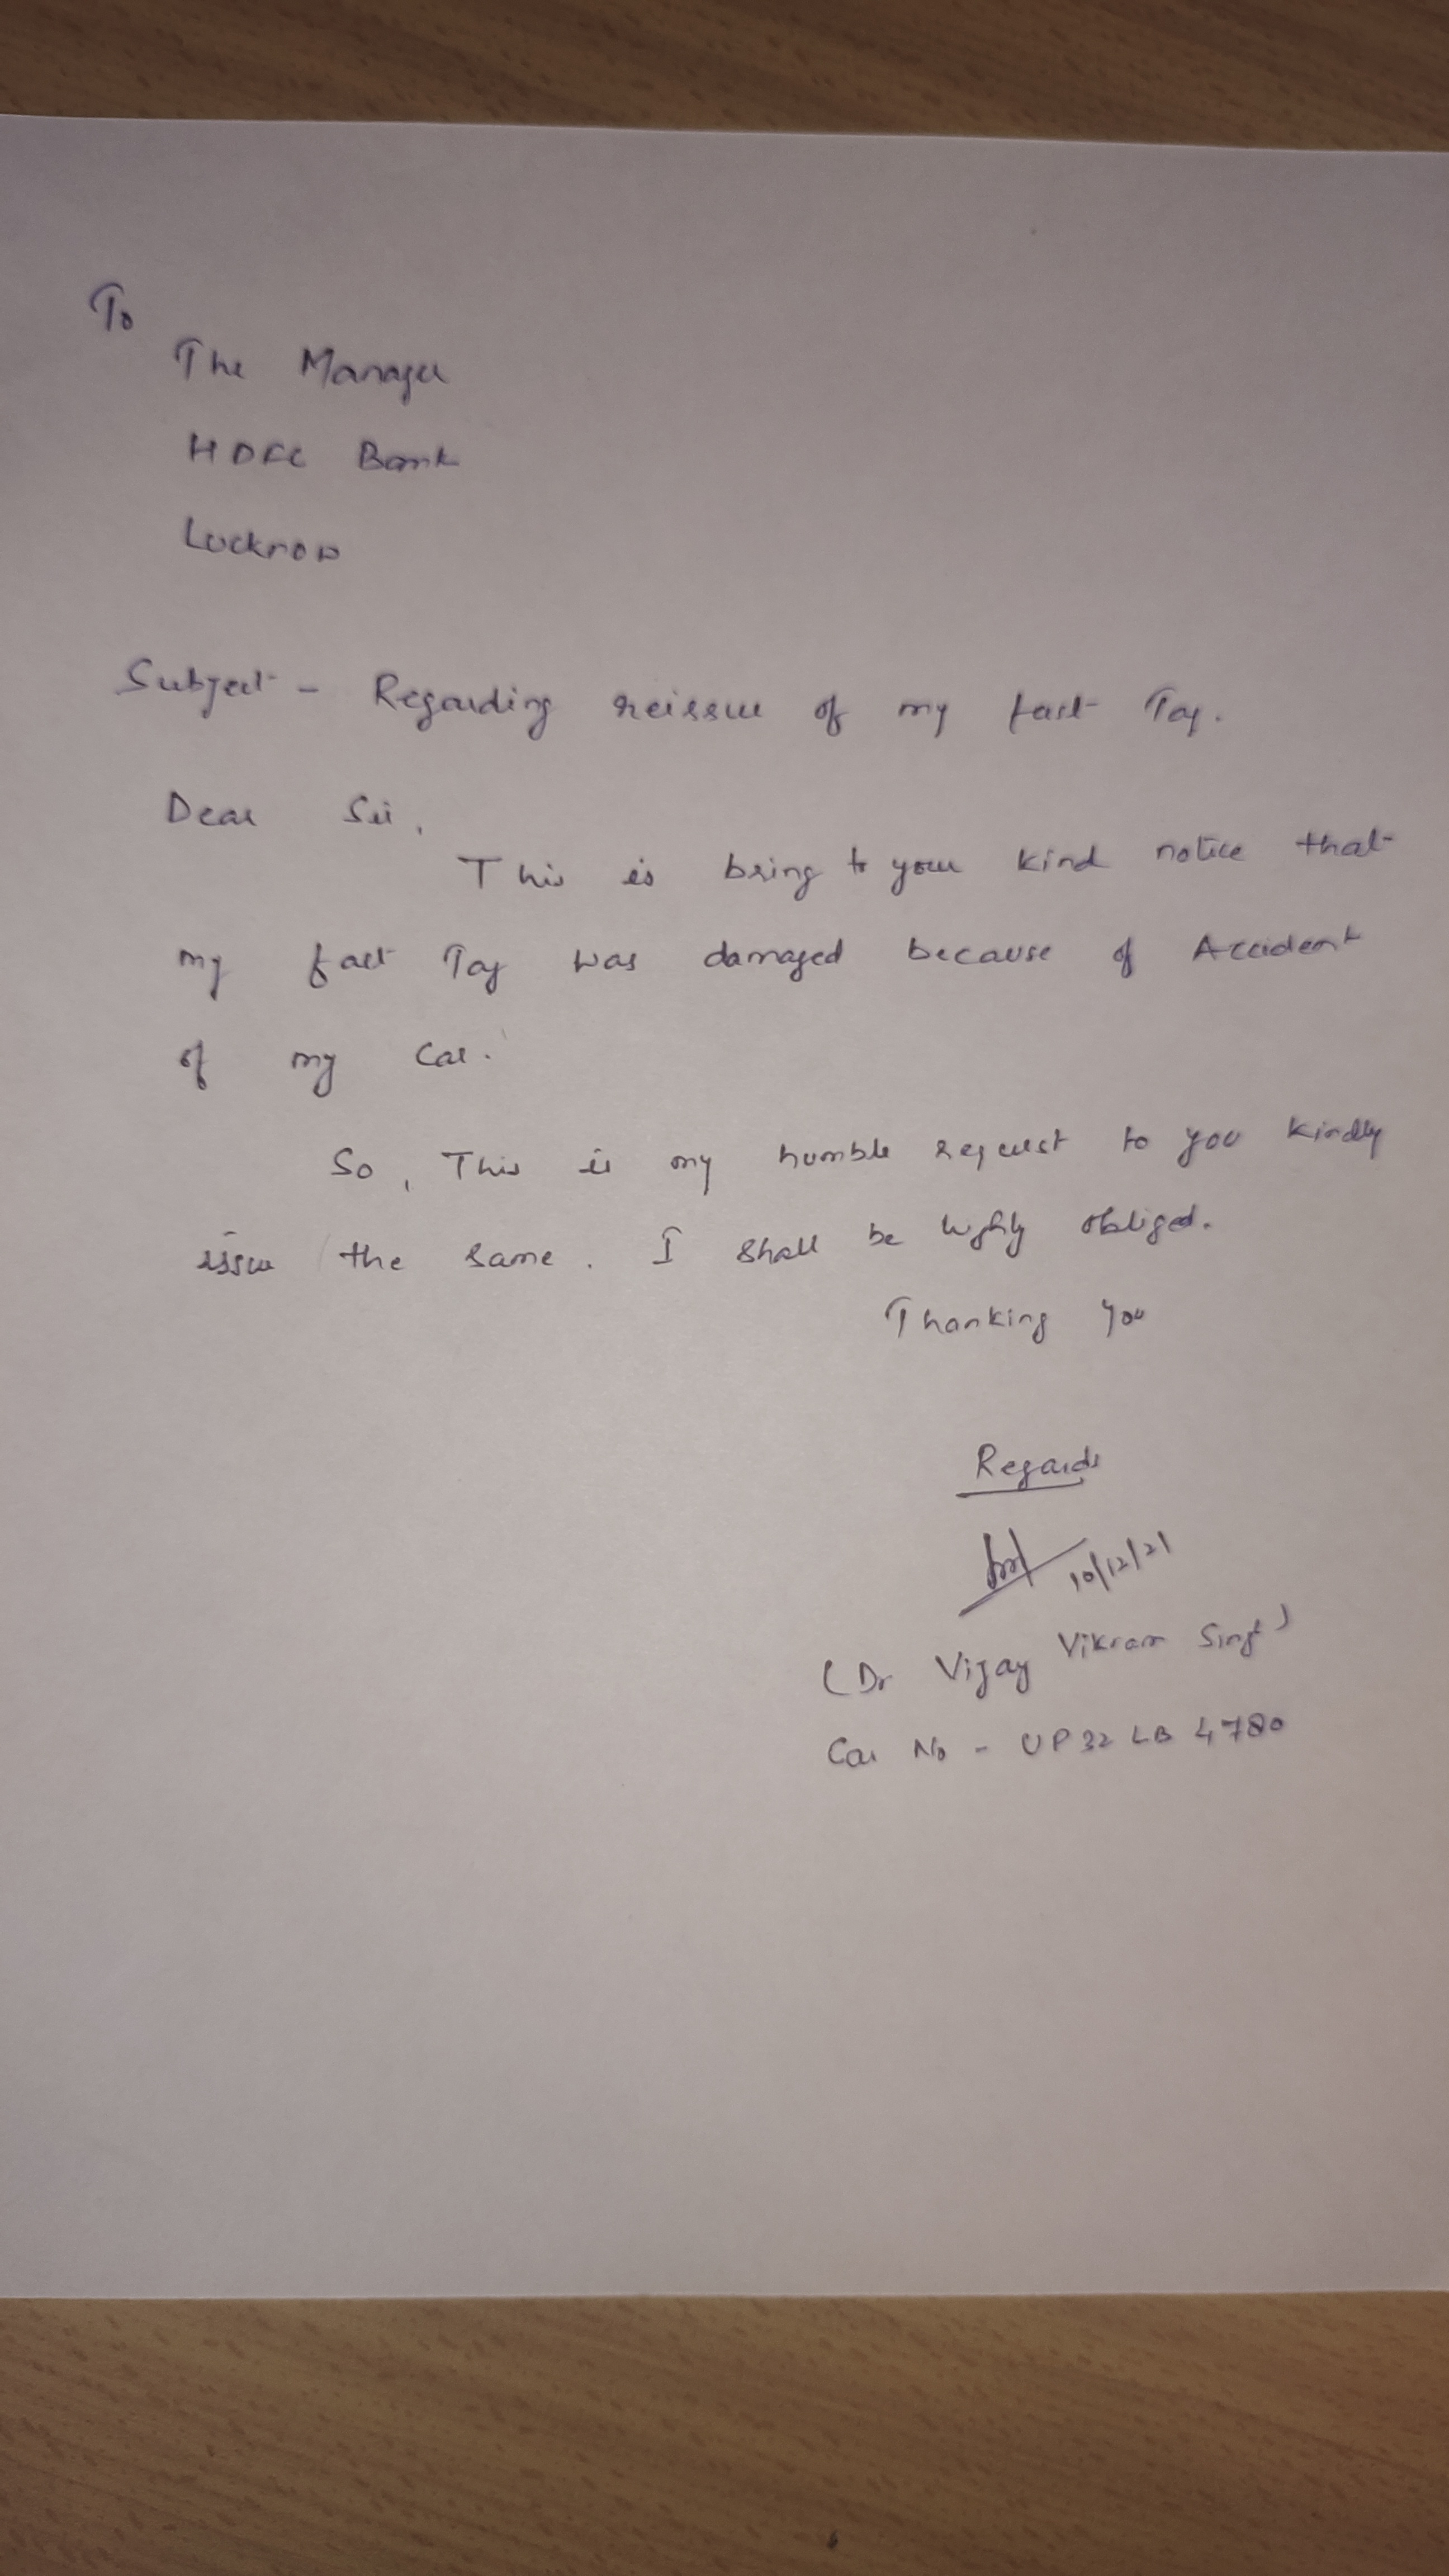 To
The Manager
HDFC Bank
Lucknow
Subject - Regarding reissue of my fast Tag.
Dear Sir,
This is bring to your kind notice that
my fast Tag was damaged because of Accident
of my Car.
So, This is my humble request to you kindly
issue the same. I shall be highly obliged.
Thanking You
Regards
10/12/21
(Dr Vijay Vikram Singh)
Car No - UP32 LB 4780